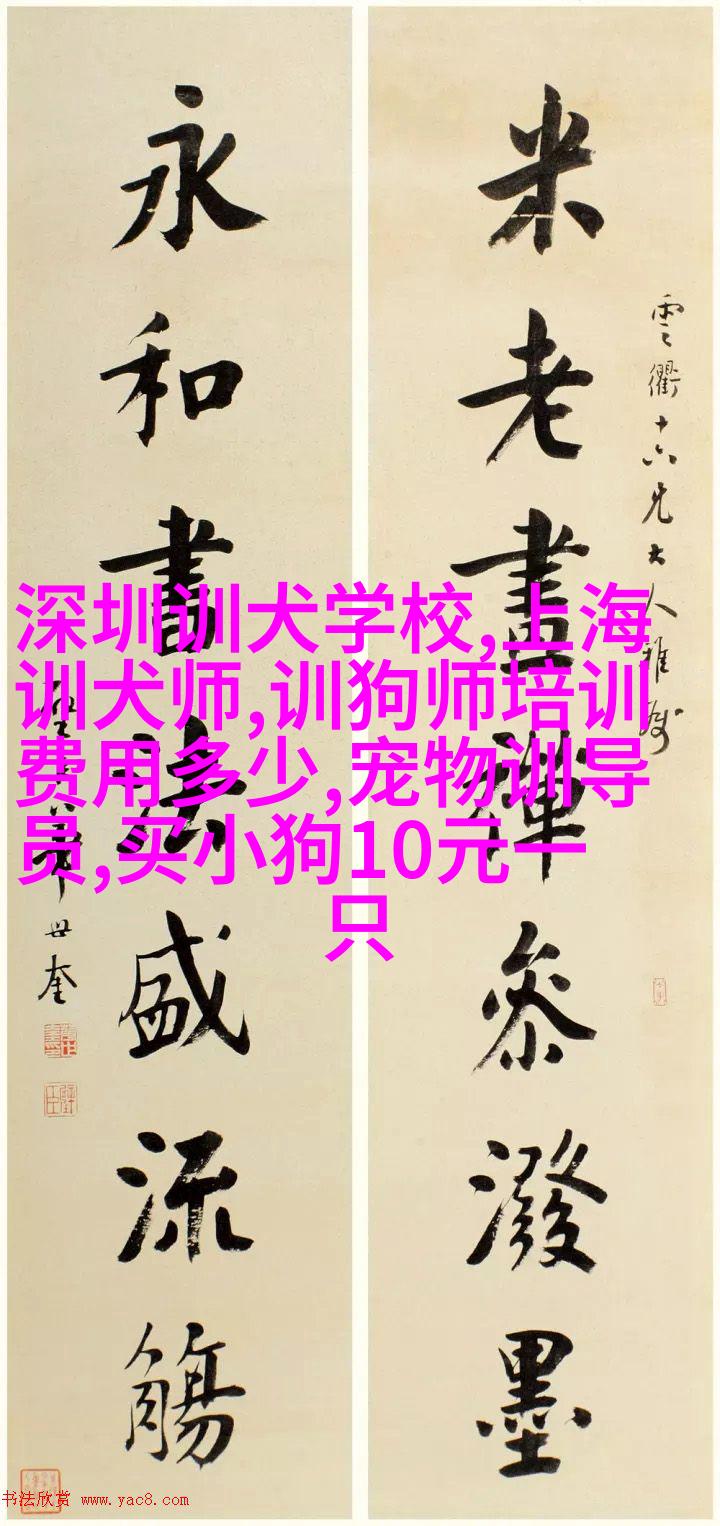 米老畫禪參潑墨
雲衢十六兄大人雅屬
永和書法盛流觴
華世奎
深圳训犬学校,上海
训犬师,训狗师培训
费用多少,宠物训导
员,买小狗10元一
只
书法欣赏 www.yac8.com